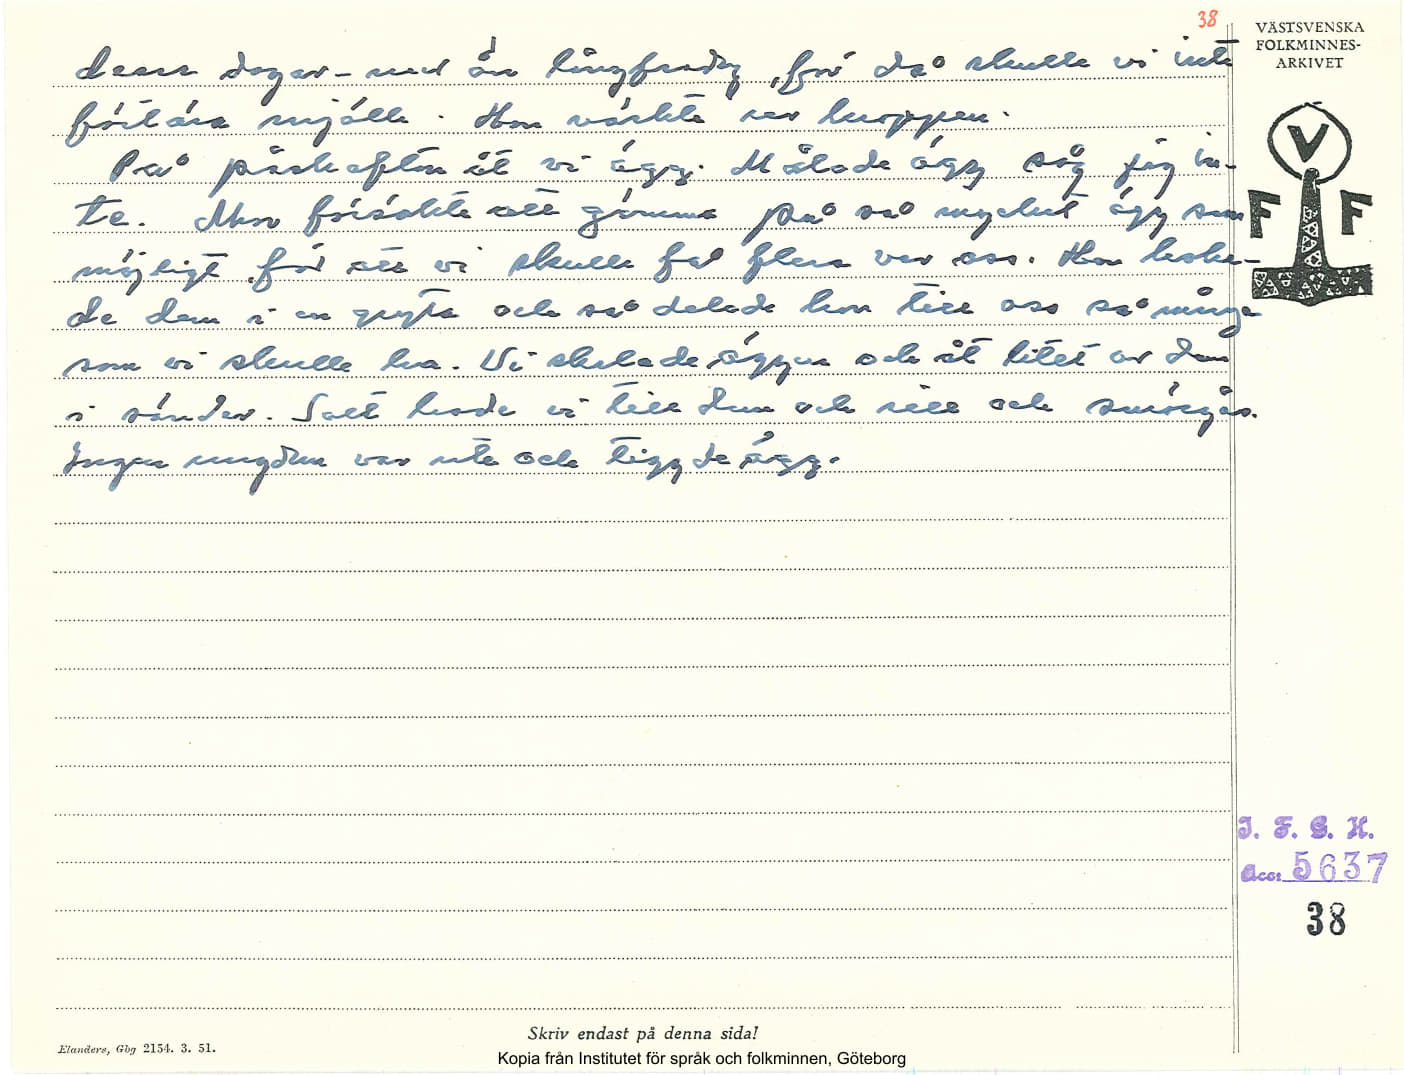 38
VÄSTSVENSKA
FOLKMINNES-
ARKIVET
dessa dagar – med än långfredag, för då skulle vi inte
förtära mjölk. Hon värkte ur kroppen.
På påskafton åt vi ägg. Målade ägg såg jag in-
te. Mor försökte att gömma på så mycket ägg som
möjligt för att vi skulle få flera var oss. Hon koka-
de dem i en gryta och så delade hon till oss så många
som vi skulle ha. Vi skalade äggen och åt litet av dem
i sänder. Salt hade vi till dem och sill och smörgås.
Ingen ungdom var ute och tiggde ägg.
V
F F
I. F. G. H.
Acc: 5637
38
Skriv endast på denna sida!
Elanders, Gbg 2154. 3. 51.
Kopia från Institutet för språk och folkminnen, Göteborg